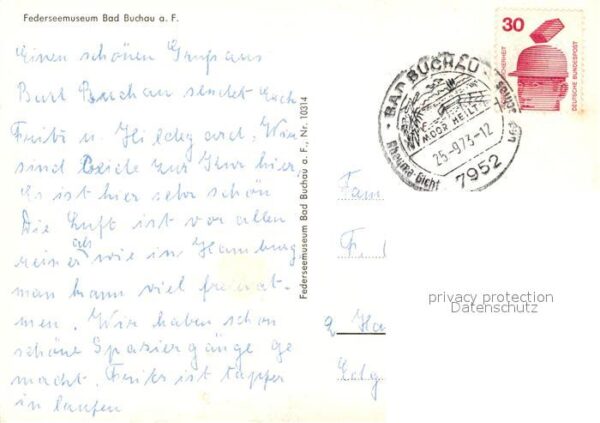 Federseemuseum Bad Buchau a. F.
Einen schönen Gruß aus
Bad Buchau sendet Euch
Fritz u. Hildegard, Wir
sind beide zur Kur hier,
Es ist hier sehr schön
Die Luft ist vor allen
reiner als wie in Hamburg
man kann viel
men. Wir haben schon
schöne Spaziergänge ge
macht. ist tapfer
in laufen
Federseemuseum Bad Buchau a. F., Nr. 10314
BAD BUCHAU
MOOR HEILT
25-9.73-12
Rheuma-Gicht
7952
30
DEUTSCHE BUNDESPOST
Fam
F.
2 Ha
Edg
privacy protection
Datenschutz